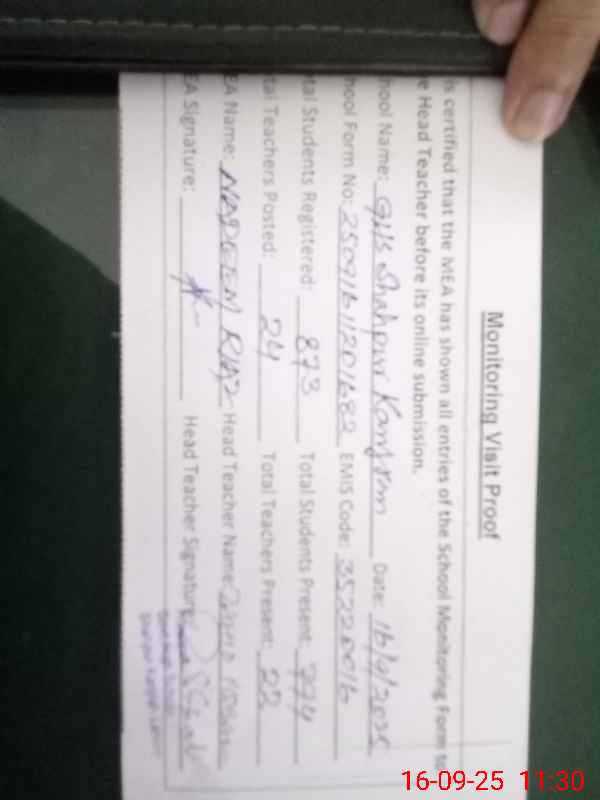 Monitoring Visit Proof
is certified that the MEA has shown all entries of the School Monitoring Form to
e Head Teacher before its online submission.
hool Name: GHS Shahpur Kanjran Date: 16/9/2025
hool Form No: 25091611201682 EMIS Code: 35220016
tal Students Registered: 873 Total Students Present: 774
tal Teachers Posted: 24 Total Teachers Present: 22
EA Name: NADEEM RIAZ Head Teacher Name:
EA Signature: Head Teacher Signature:
16-09-25 11:30